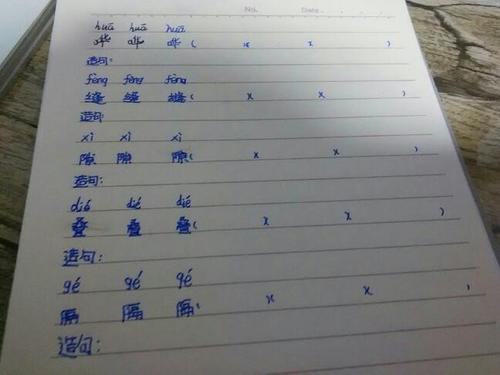 No. Date.
huā huā huā
哗 哗 哗( x x )
造句:
fèng fèng fèng
缝 缝 缝( x x )
造句:
xì xì xì
隙 隙 隙( x x )
造句:
dié dié dié
叠 叠 叠( x x )
造句:
gé gé gé
隔 隔 隔( x x )
造句: